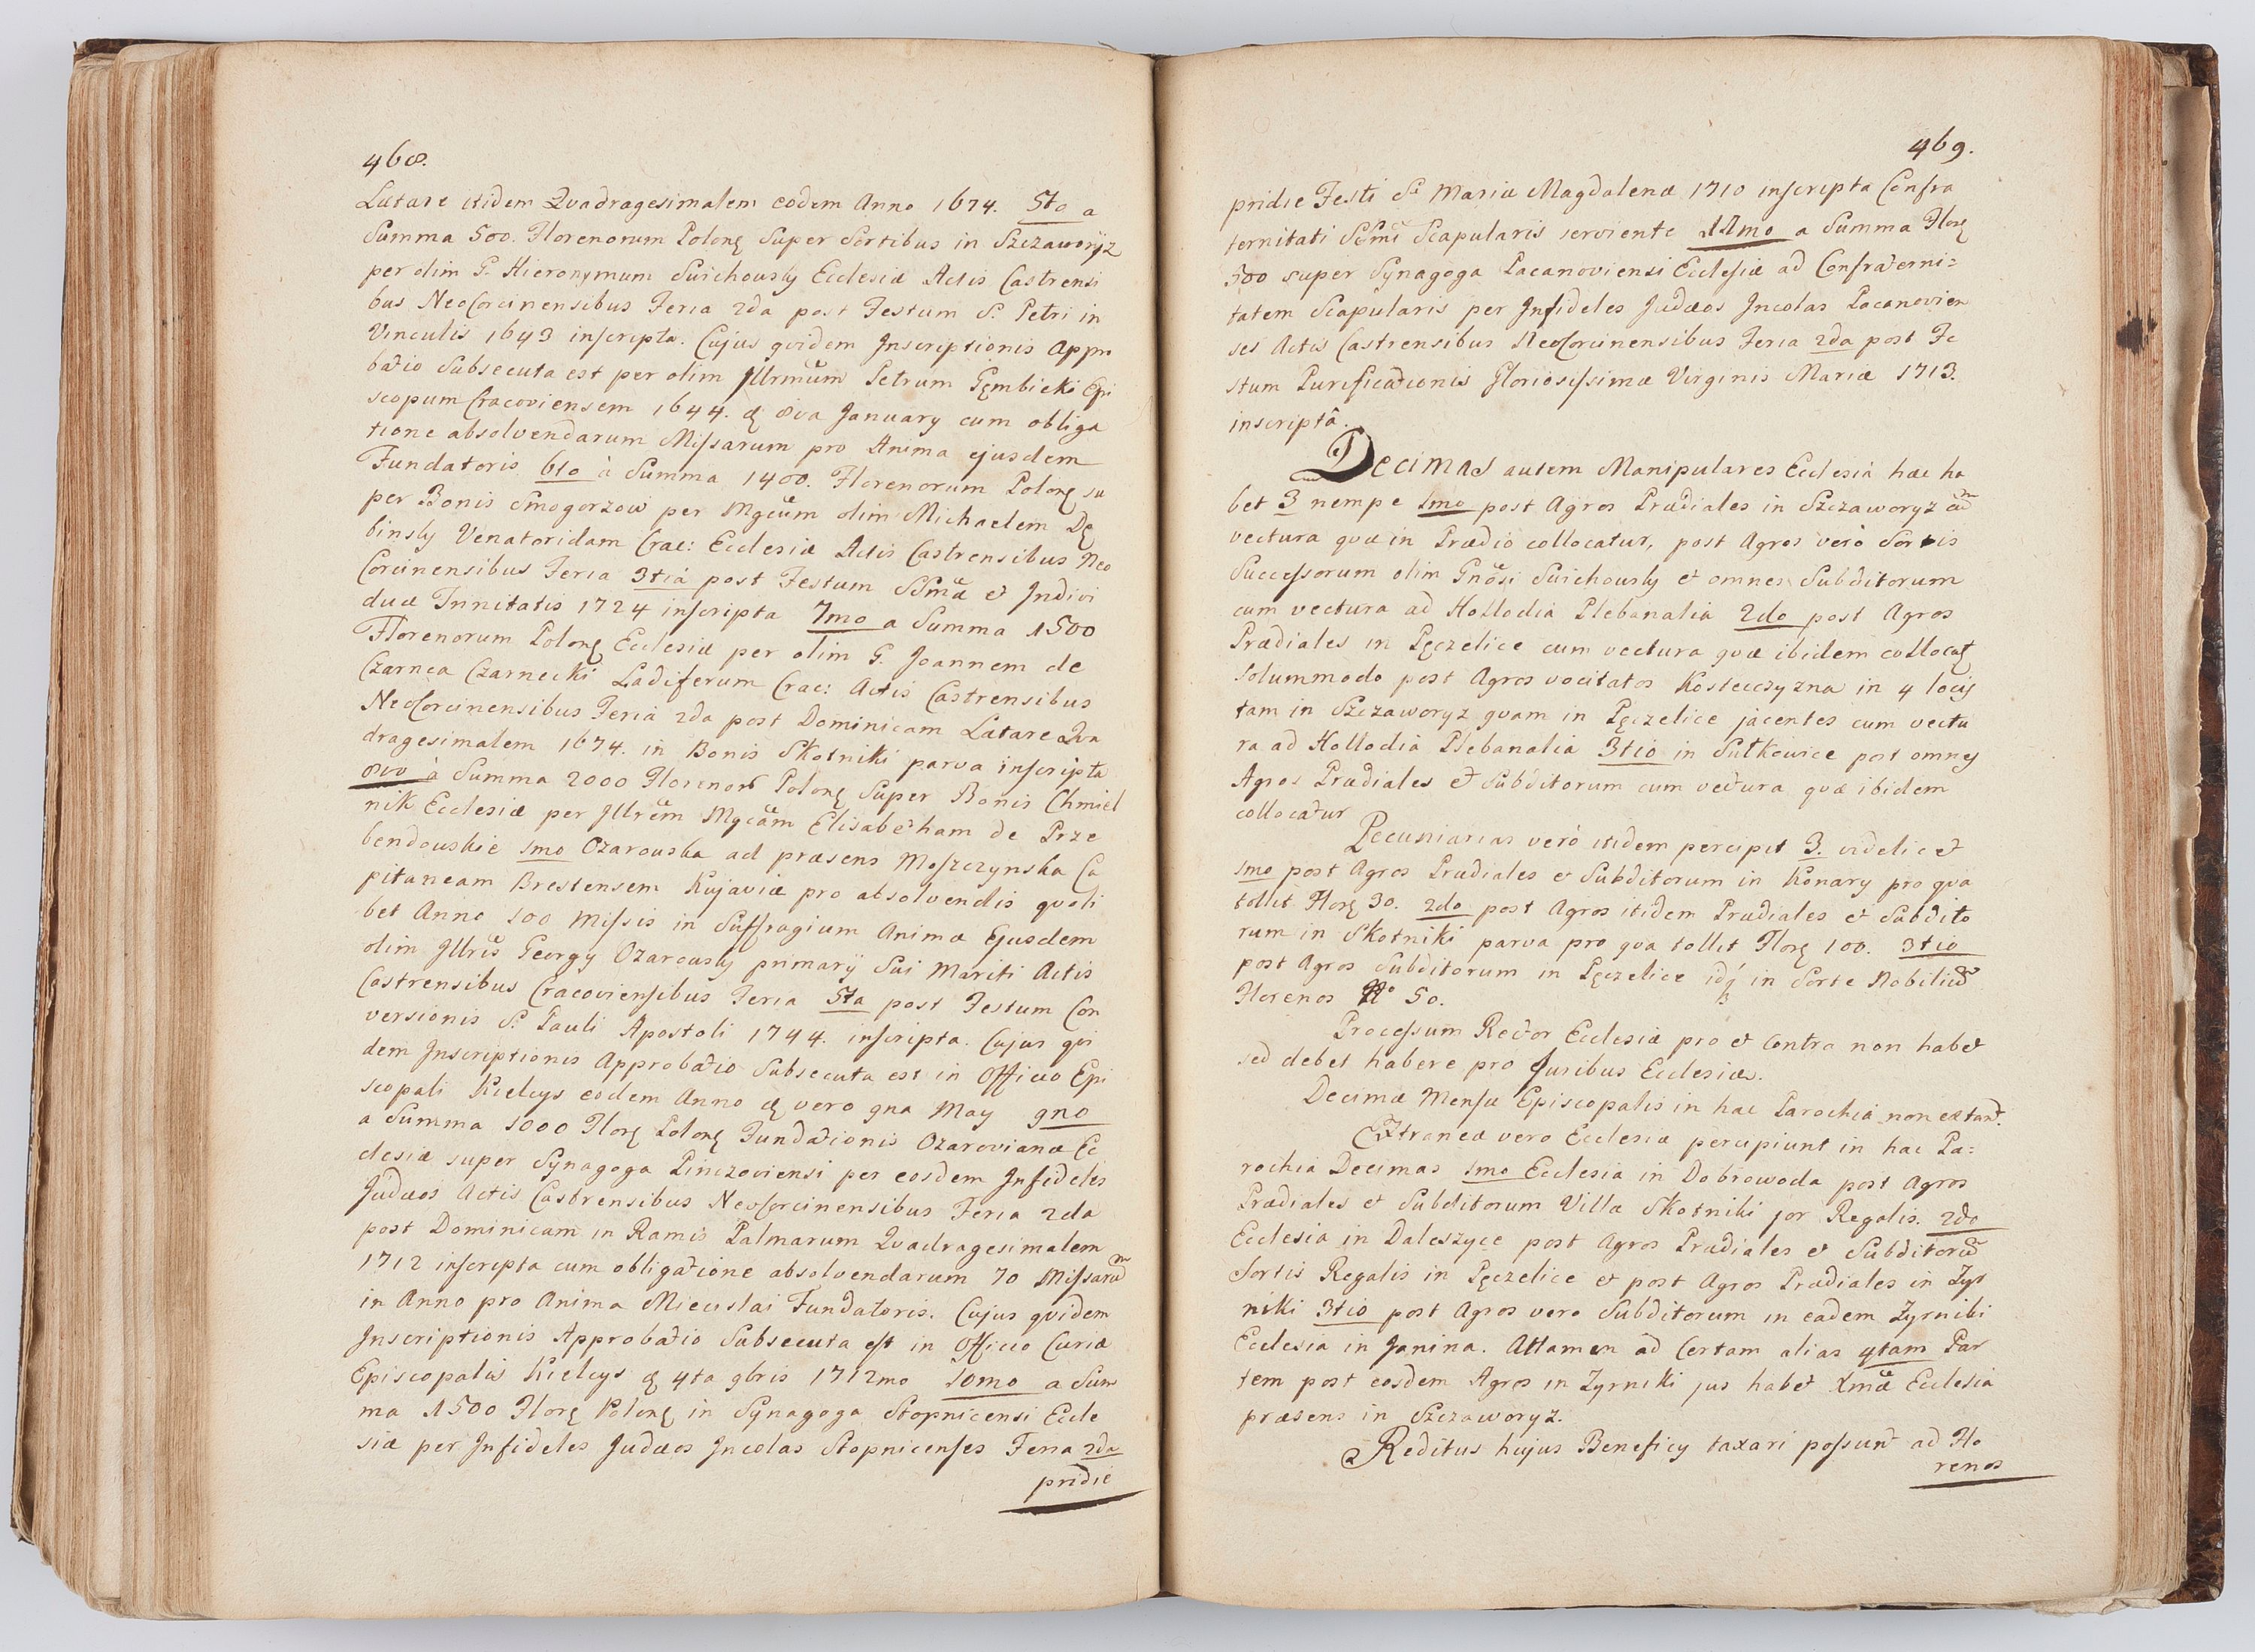 468.
Lætare itidem Qvadragesimalem eodem Anno 1674. 5to a
Summa 500. Florenorum Polonɋ Super Sortibus in Szczaworyz
per olim G. Hieronymum Suichowsky Ecclesiæ Actis Castrensi
bus NeoCorcinensibus Feria 2da post Festum S. Petri in
Vinculis 1643 inscripta. Cujus qvidem Inscriptionis Appro
batio Subsecuta est per olim Illrmum Petrum Gęmbicki Epi
scopum Cracoviensem 1644. d 8va January cum obliga
tione absolvendarum Missarum pro Anima ejusdem
Fundatoris 6to à Summa 1400. Florenorum Polonɋ su
per Bonis Smogorzow per Mgcum olim Michaelem Dę
binsky Venatoridam Crac: Ecclesiæ Actis Castrensibus Neo
Corcinensibus Feria 3tiá post Festum SSmæ et Indivi
duæ Trinitatis 1724 inscripta 7mo a Summa 1500
Florenorum Polonɋ Ecclesiæ per olim G. Joannem de
Czarnca Czarnecki Ladiferum Crac: Actis Castrensibus
NeoCorcinensibus Feria 2da post Dominicam Lætare Qva
dragesimalem 1674. in Bonis Skotniki parva inscripta
8vo à Summa 2000 Florenor Polonɋ Super Bonis Chmiel
nik Ecclesiæ per Illrem Mgcam Elisabetham de Prze
bendowskie 1mo Ozarowska ad præsens Moszczynska Ca
pitaneam Brestensem Kujaviæ pro absolvendis qvoli
bet Anno 100 Missis in Suffragium Animæ Ejusdem
olim Illris Georgy Ozarowsky primarij Sui Mariti Actis
Castrensibus Cracoviensibus Feria 5ta post Festum Con
versionis S. Pauli Apostoli 1744. inscripta. Cujus qvi
dem Inscriptionis Approbatio Subsecuta est in Officio Epi
scopali Kielcys eodem Anno d vero 9na May 9no
a Summa 1000 Florɋ Polonɋ Fundationis Ozarovianæ Ec
clesiæ super Synagoga Pinczoviensi per eosdem Infideles
Judæos Actis Castrensibus NeoCorcinensibus Feria 2da
post Dominicam in Ramis Palmarum Qvadragesimalem
1712 inscripta cum obligatione absolvendarum 70 Missarum
in Anno pro Anima Mieislai Fundatoris. Cujus qvidem
Inscriptionis Approbatio Subsecuta est in Officio Curiæ
Episcopalis Kielcys d 4ta 9bris 1712mo 10mo a Sum
ma 1500 Florɋ Polonɋ in Synagoga Stopnicensi Eccle
siæ per Infideles Judæos Incolas Stopnicenses Feria 2da
pridie
469.
pridie Festi S. Mariæ Magdalenæ 1710 inscripta Confra
ternitati SSmi Scapularis serviente 11mo a Summa Florɋ
500 super Synagoga Pacanoviensi Ecclesiæ ad Confraterni=
tatem Scapularis per Infideles Judæos Incolas Pacanovien
ses Actis Castrensibus NeoCorcinensibus Feria 2da post Fe
stum Purificationis Gloriosissimæ Virginis Mariæ 1713.
inscriptâ.
Decimas autem Manipulares Ecclesia hæc ha
bet 3 nempe 1mo post Agros Prædiales in Szczaworyz cum
vectura qvæ in Prædio collocatur, post Agros verò Sortis
Successorum olim Gnosi Suichowsky et omnes Subditorum
cum vectura ad Hollodia Plebanalia 2do post Agros
Prædiales in Pęczelice cum vectura qvæ ibidem collocatɋ
Solummodo post Agros vocitatos Kosteczyzna in 4 locis
tam in Szczaworyz qvam in Pęczelice jacentes cum vectu
ra ad Hollodia Plebanalia 3tio in Sułkowice post omnes
Agros Prædiales et Subditorum cum vectura qvæ ibidem
collocatur
Pecuniarias verò itidem percipit 3. videlicet
1mo post Agros Prædiales et Subditorum in Konary pro qva
tollit Florɋ 30. 2do post Agros itidem Prædiales et Subdito
rum in Skotniki parva pro qva tollit Florɋ 100. 3tio
post Agros Subditorum in Pęczelice idq in Sorte Nobilium
Florenos No 50.
Processum Rector Ecclesiæ pro et contra non habet
sed debet habere pro Juribus Ecclesiæ.
Decimæ Mensæ Episcopalis in hac Parochia non extant.
Extraneæ vero Ecclesiæ percipiunt in hac Pa=
rochia Decimas 1mo Ecclesia in Dobrowoda post Agros
Prædiales et Subditorum Villæ Skotniki jor Regalis. 2do
Ecclesia in Daleszyce post Agros Prædiales et Subditorum
Sortis Regalis in Pęczelice et post Agros Prædiales in Zyr
niki 3tio post Agros vero Subditorum in eadem Zyrniki
Ecclesia in Janina. Attamen ad Certam alias 4tam Par
tem post eosdem Agros in Zyrniki jus habet Xmæ Ecclesia
præsens in Szczaworyz.
Reditus hujus Beneficy taxari possunt ad Flo
renos